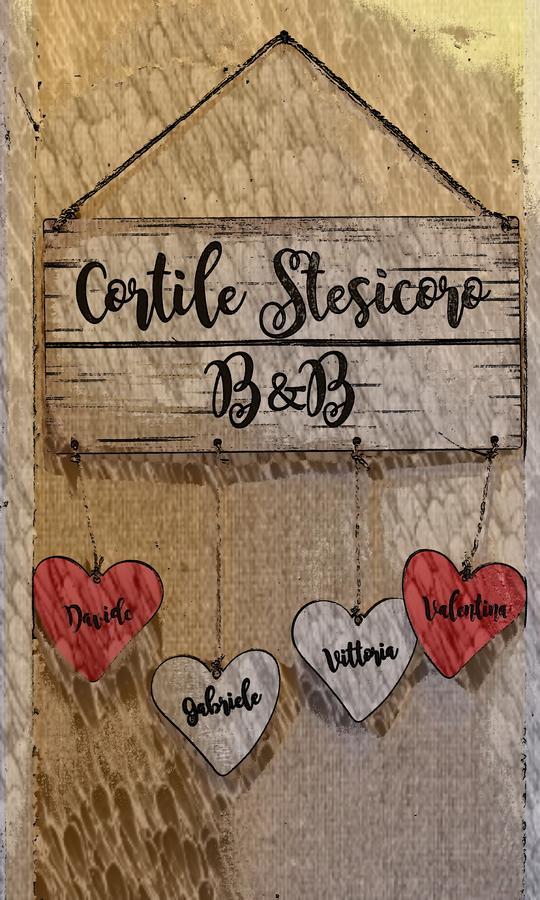 Cortile Stesicoro
B&B
Davide
Gabriele
Vittoria
Valentina